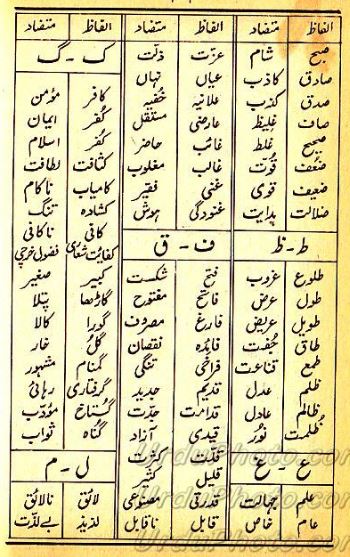 الفاظ متضاد
صبح شام
صادق کاذب
صدق کذب
صاف غلیظ
صحیح غلط
ضعف قوت
ضعیف قوی
ضلالت ہدایت
ط - ظ
طلوع غروب
طول عرض
طویل عریض
طاق جفت
طمع قناعت
ظلم عدل
ظالم عادل
ظلمت نور
ع - غ
علم جہالت
عام خاص
الفاظ متضاد
عزت ذلت
عیاں نہاں
علانیہ خفیہ
عارضی مستقل
غائب حاضر
غالب مغلوب
غنی فقیر
غنودگی ہوش
ف - ق
فتح شکست
فاتح مفتوح
فارغ مصروف
فائدہ نقصان
فراخی تنگی
قدیم جدید
قدامت جدت
قیدی آزاد
قلت کثرت
قلیل کثیر
قدرتی مصنوعی
قابل ناقابل
الفاظ متضاد
ک - گ
کافر مؤمن
کفر ایمان
کفر اسلام
کثافت لطافت
کامیاب ناکام
کشادہ تنگ
کافی ناکافی
کفایت شعاری فضول خرچی
کبیر صغیر
گاڑھا پتلا
گورا کالا
گل خار
گمنام مشہور
گرفتاری رہائی
گستاخ مؤدب
گناہ ثواب
ل - م
لائق نالائق
لذیذ بے لذت
UrduPhoto.com
UrduPhoto.com
UrduPhoto.com